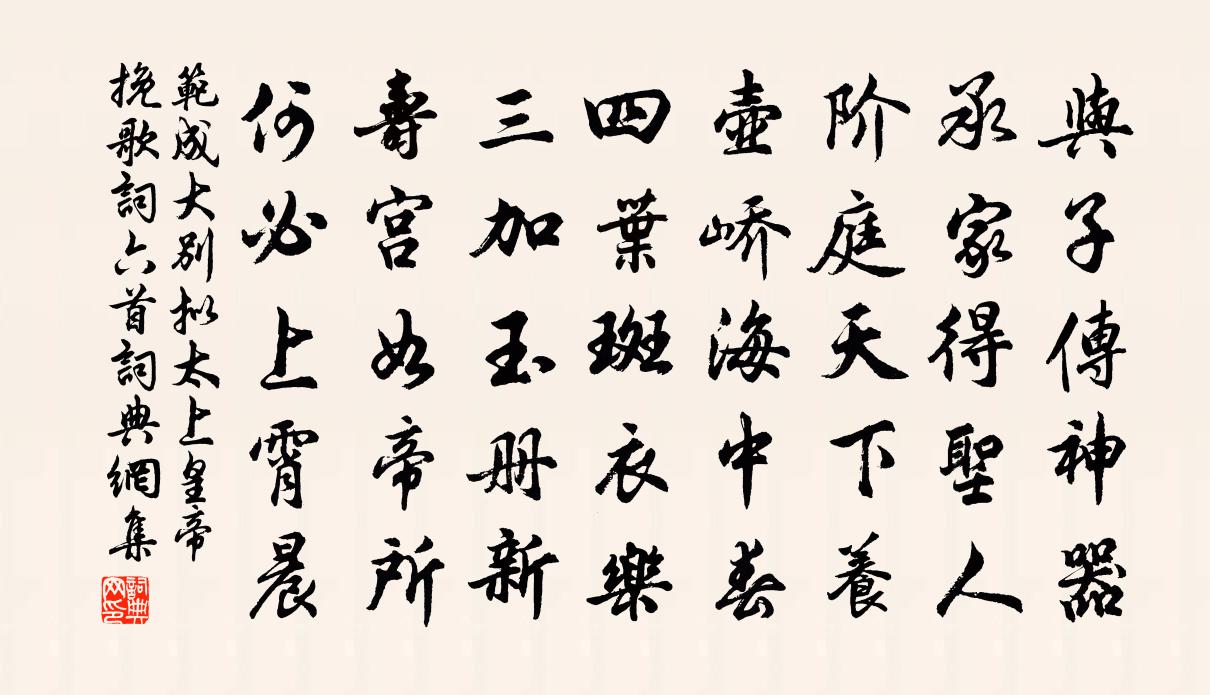 與子傳神器
承家得聖人
阶庭天下養
壺峤海中春
四葉斑衣樂
三加玉册新
壽宫如帝所
何必上霄晨
範成大别拟太上皇帝
挽歌詞六首詞典網集
詞典
网印